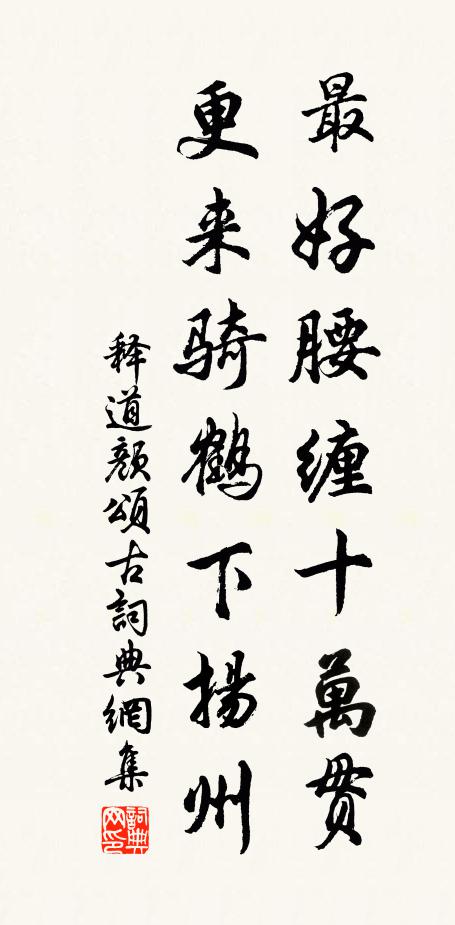 最好腰缠十萬贯
更来骑鹤下揚州
释道颜頌古詞典網集
詞典網印